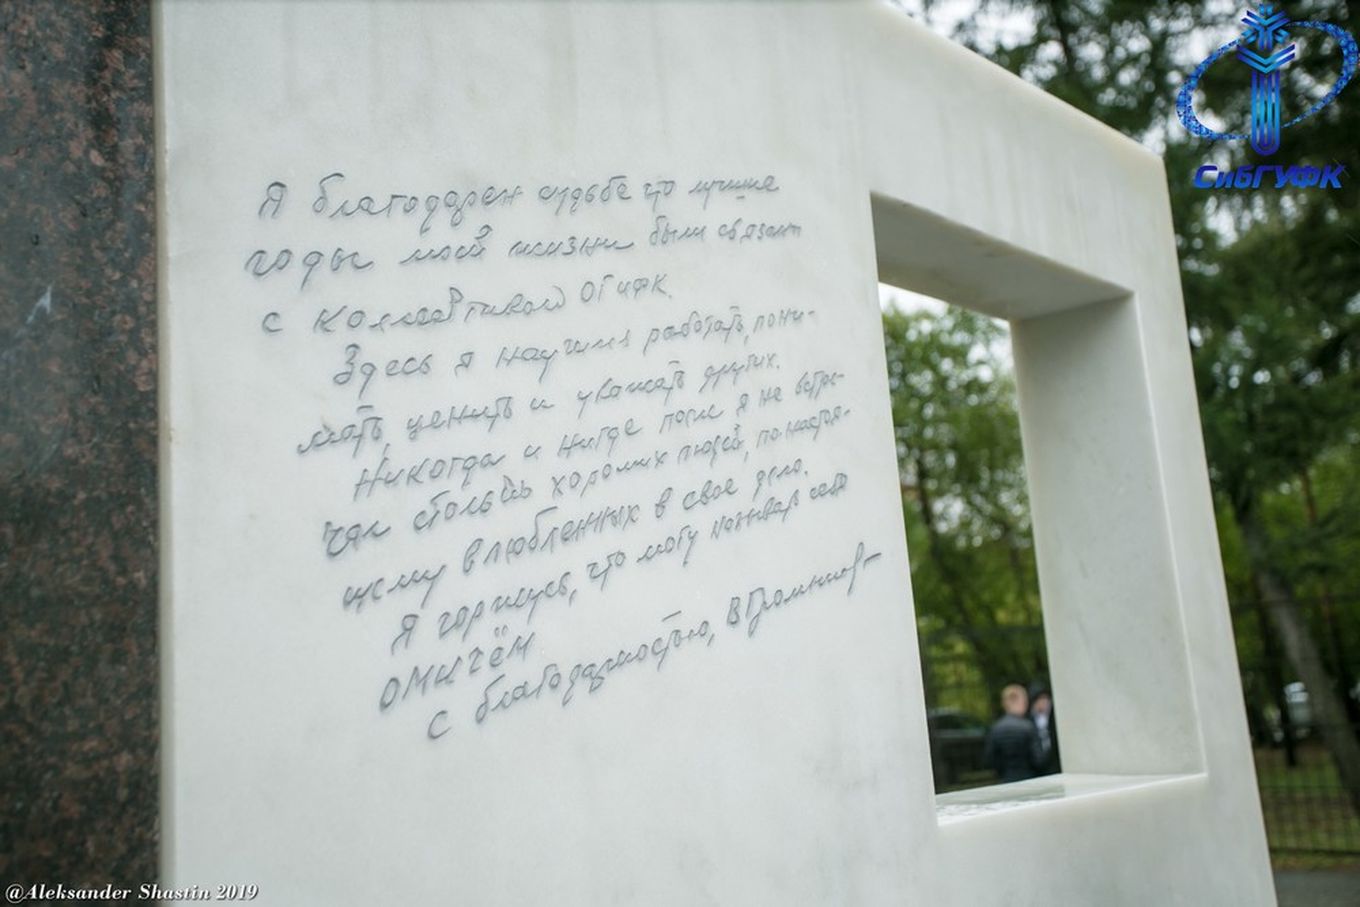 СибГУФК
Я благодарен судьбе что лучшие
годы моей жизни были связаны
с коллективом ОГИФК.
Здесь я научился работать, пони-
мать, ценить и уважать других.
Никогда и нигде после я не встре-
чал столько хороших людей, по настоя-
щему влюбленных в свое дело.
Я горжусь, что могу называть себя
омичём
С благодарностью,
@Aleksander Shastin 2019